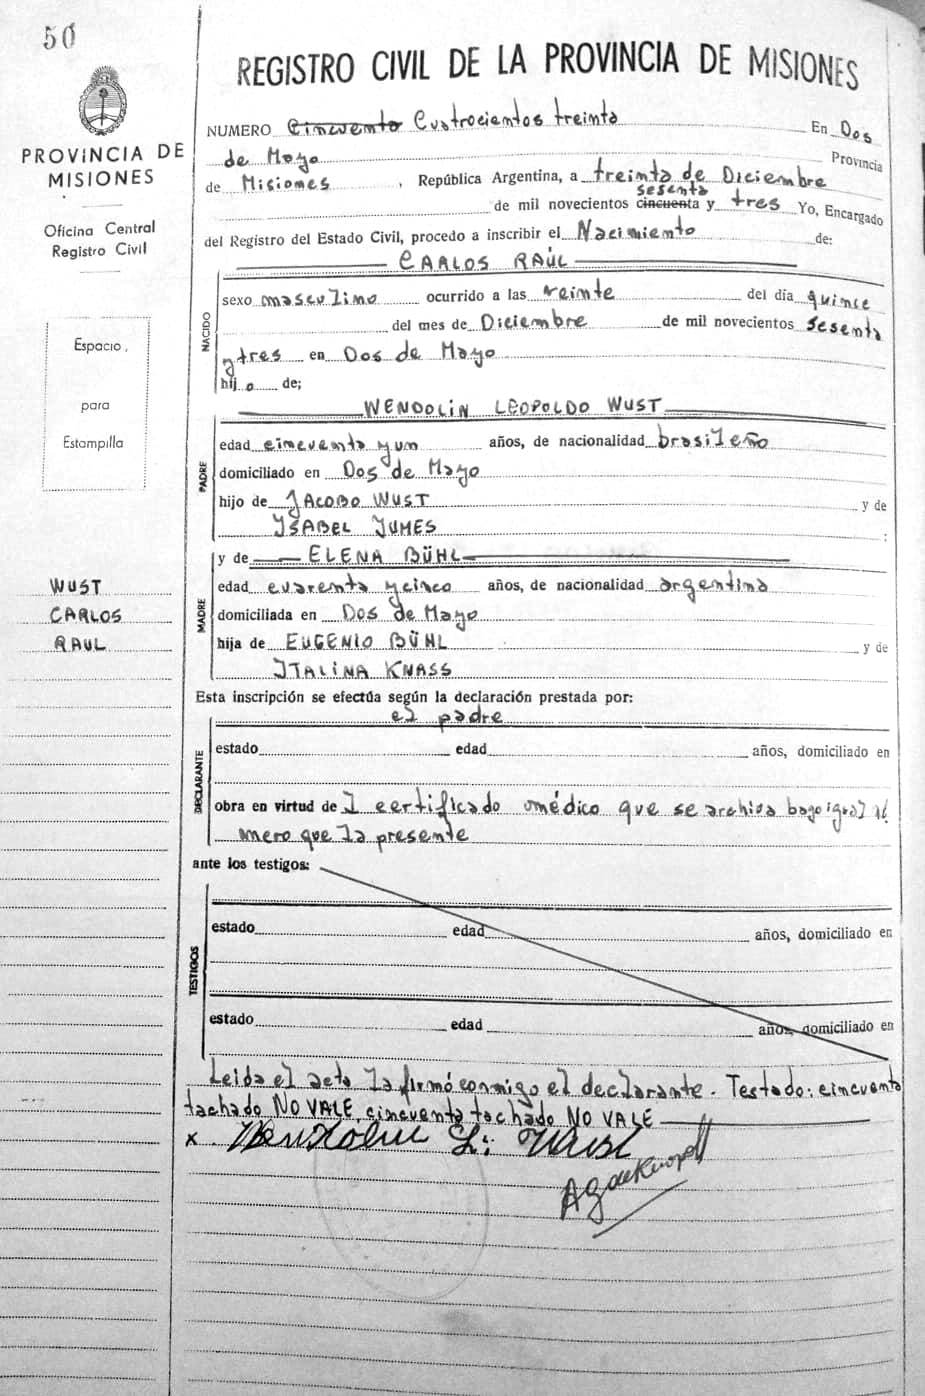 50
PROVINCIA DE
MISIONES
Oficina Central
Registro Civil
Espacio
para
Estampilla
WUST
CARLOS
RAUL
REGISTRO CIVIL DE LA PROVINCIA DE MISIONES
NUMERO Cincuenta Cuatrocientos treinta En Dos
de Mayo Provincia
de Misiones, República Argentina, a treinta de Diciembre
sesenta
de mil novecientos cincuenta y tres Yo, Encargado
del Registro del Estado Civil, procedo a inscribir el Nacimiento de:
CARLOS RAÚL
NACIDO
sexo masculino ocurrido a las veinte del día quince
del mes de Diciembre de mil novecientos sesenta
y tres en Dos de Mayo
hijo de;
WENDOLIN LEOPOLDO WUST
PADRE
edad cincuenta y un años, de nacionalidad brasileño
domiciliado en Dos de Mayo
hijo de JACOBO WUST y de
ISABEL JUMES :
y de ELENA BÜHL
MADRE
edad cuarenta y cinco años, de nacionalidad argentina
domiciliada en Dos de Mayo
hija de EUGENIO BÜHL y de
ITALINA KNASS
Esta inscripción se efectúa según la declaración prestada por:
el padre
DECLARANTE
estado edad años, domiciliado en
obra en virtud de 1 certificado médico que se archiva bajo igual nú
mero que la presente
ante los testigos:
TESTIGOS
estado edad años, domiciliado en
estado edad años, domiciliado en
Leida el acta la firmó conmigo el declarante. Testado: cincuenta
tachado NO VALE, cincuenta tachado NO VALE
x. Wendolin L: Wust